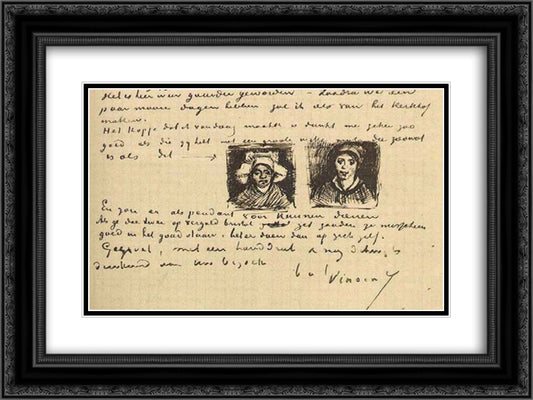 Het is hier weer guurder geworden – Zoodra we een
paar mooie dagen hebben zal ik iets van het Kerkhof
maken.
Het kopje dat ik vandaag maakte is dunkt me zeker zoo
goed als die gij hebt met een groote witte die zoowat
is als dit
En zou er als pendant voor kunnen dienen
Als ge die twee op verguld bristol zet zouden ze misschien
goed in het goud staan. beter dan op zich zelf.
Gegroet, met een handdruk & nog dank
voor Uw bezoek
b. à t.
Vincent